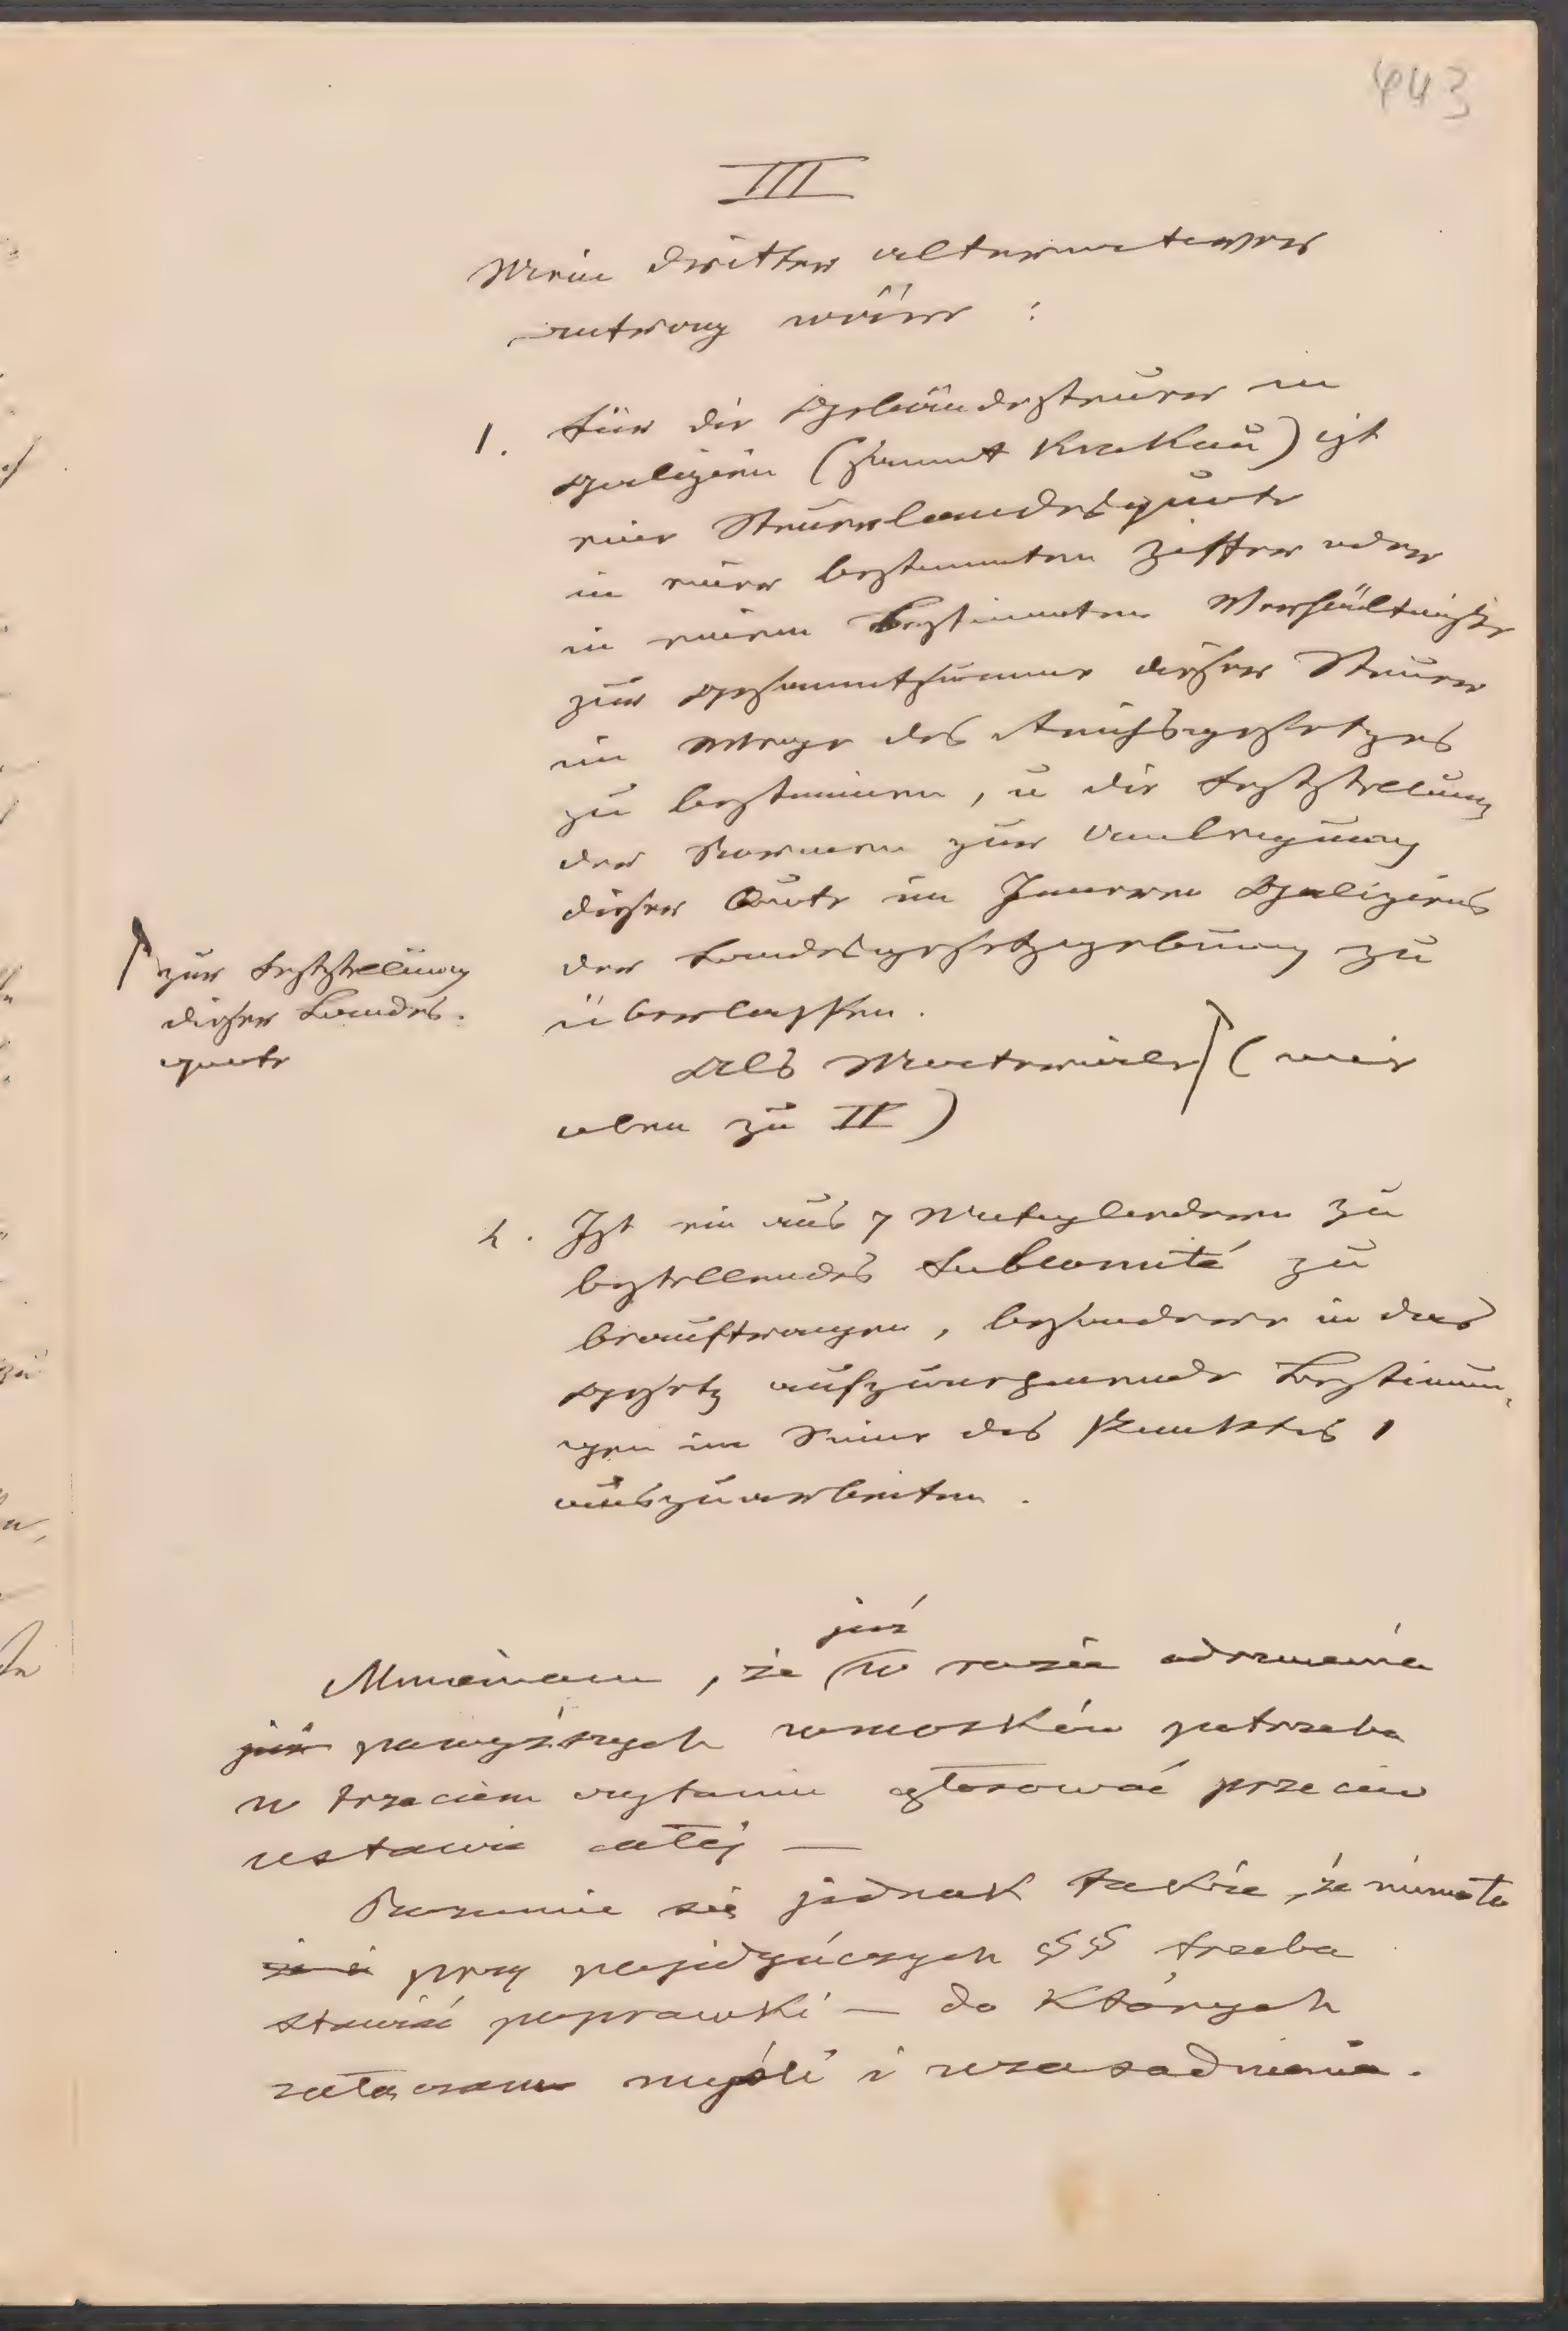 443
III
Mein dritter alternativer
Antrag wäre :
1. Für die Gebäudesteuer in
Galizien (sammt Krakau) ist
eine Steuerlandesquote
in einer bestimmten Ziffer oder
in einem bestimmten Verhältnisse
zur Gesammtsumme dieser Steuer
im Wege des Reichsgesetzes
zu bestimmen, u die Feststellung
der Normen zur Umlegung
dieser Quote im Inneren Galiziens
der Landesgesetzgebung zu
überlassen.
zur Feststellung
dieser Landes-
quote
Als Materiale (wie
oben zu II)
2. Ist ein aus 7 Mitgliedern zu
bestellendes Subcomité zu
beauftragen, besondere in das
Gesetz aufzunehmende Bestimmun-
gen im Sinne des Punktes 1
auszuarbeiten.
już
Mniemam, że w razie odrzucenia
już powyższych wniosków potrzeba
w trzeciem czytaniu głosować przeciw
ustawie całej —
Rozumie się jednak także, że nimoto
przy pojedyńczych §§ trzeba
stawiać poprawki — do których
załączam myśli i uzasadnienia.